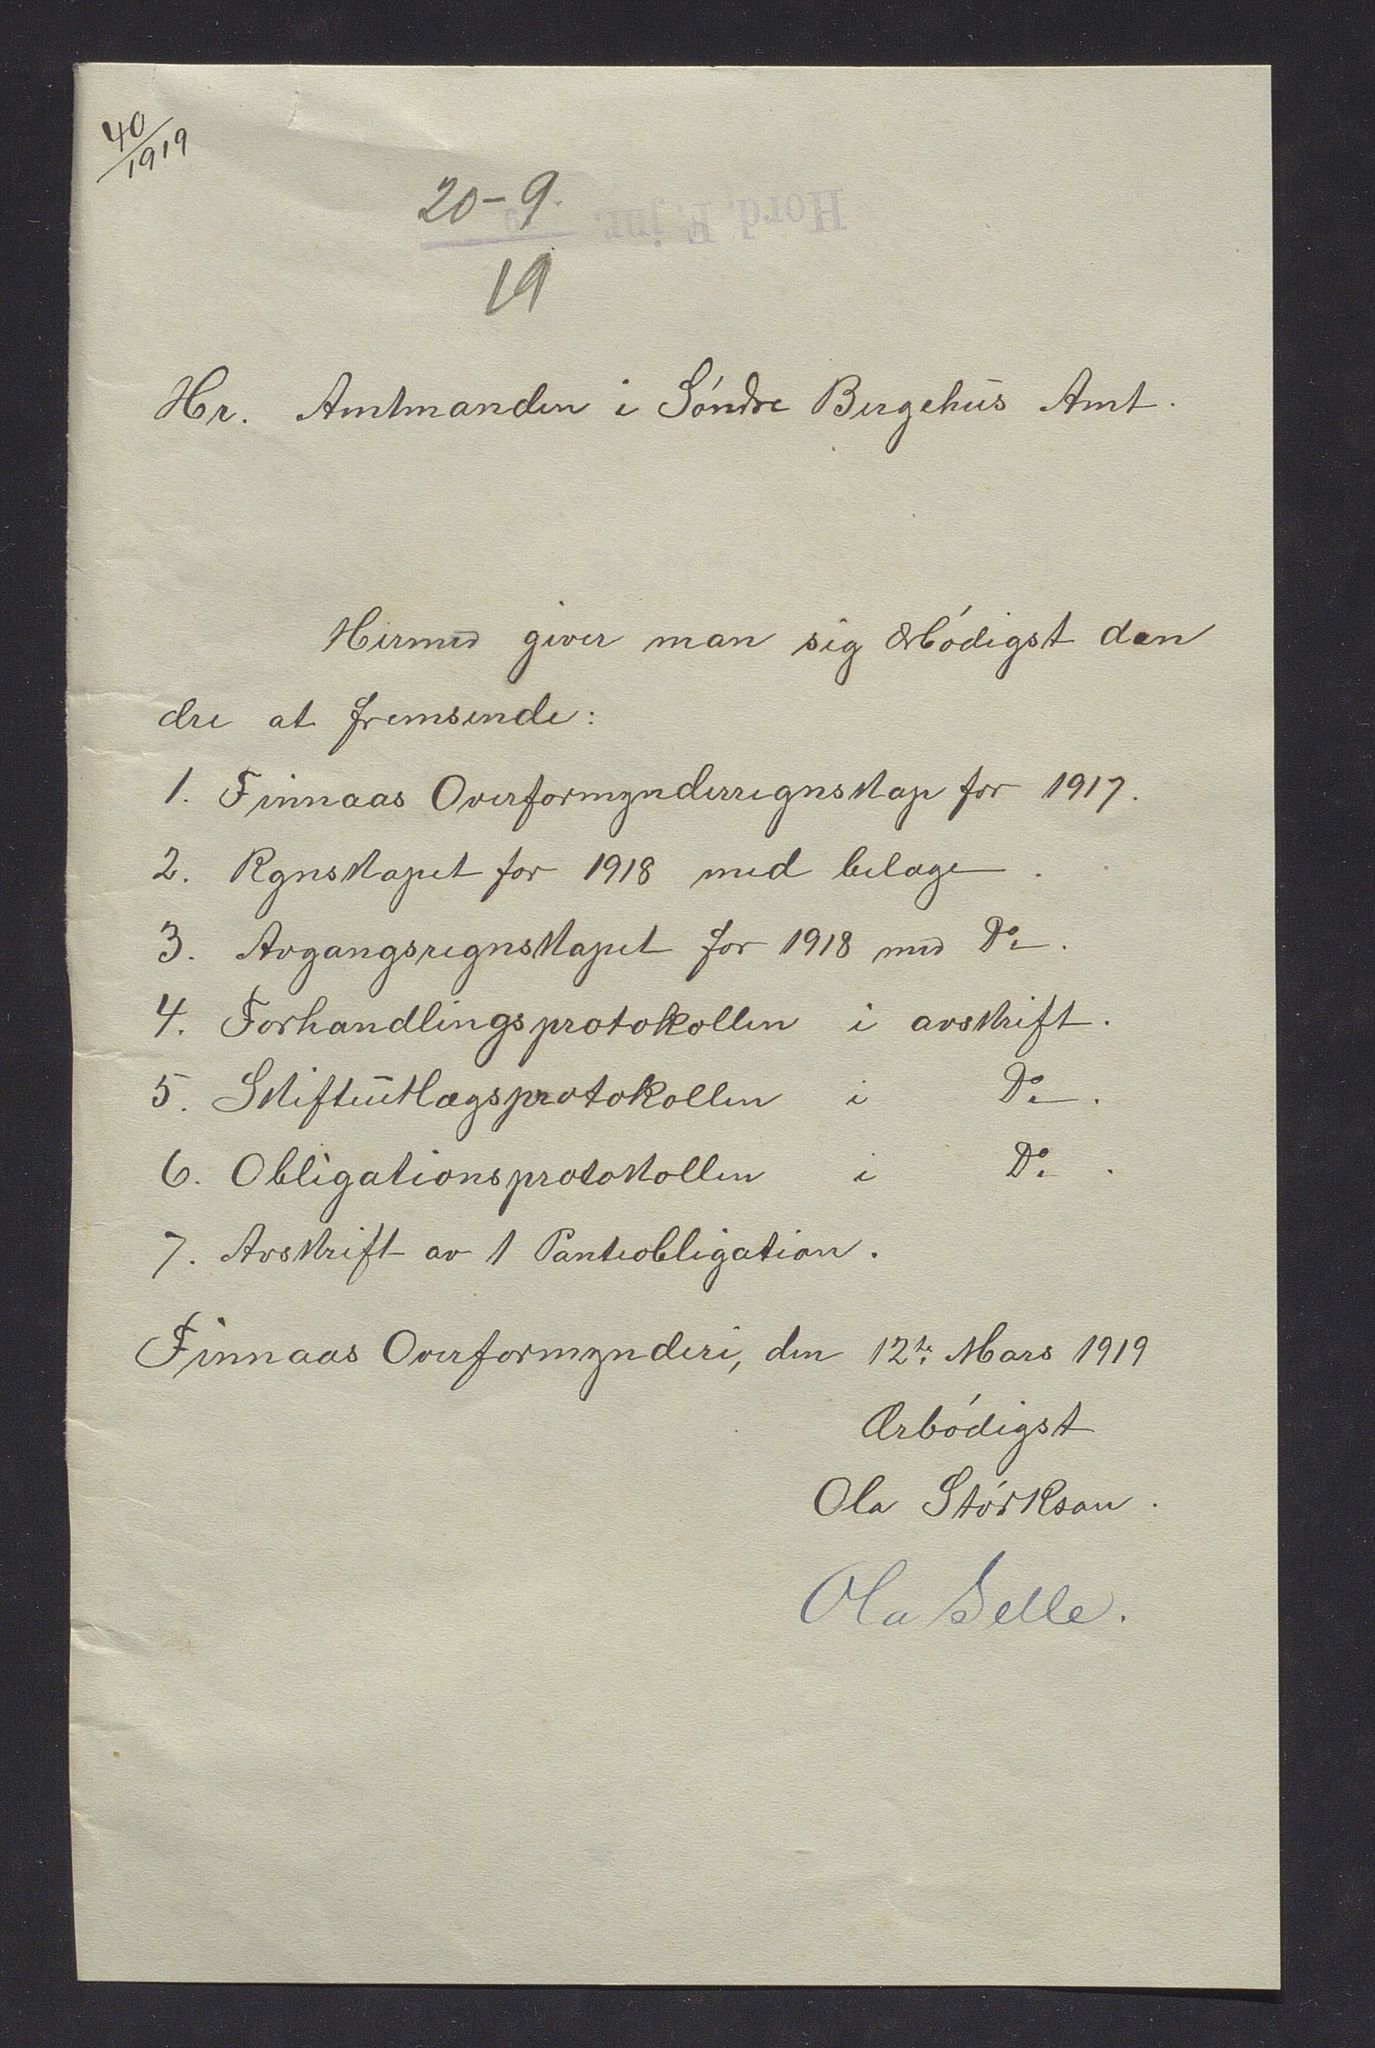 40/1919
20-9.
19
Hord. F. jnr.
Hr. Amtmanden i Söndre Bergehus Amt.
Hermed giver man sig ærbódigst den
dre at fremsende:
1. Finnaas Overformynderregnskap for 1917.
2. Rgnskapet for 1918 med belage.
3. Avgangsregnskapet for 1918 med Do.
4. Forhandlingsprotokollen i avskrift.
5. Skifteutlægsprotokollen i Do.
6. Obligationsprotokollen i Do.
7. Avskrift av 1 Panteobligation.
Finnaas Overformynderi, den 12te Mars 1919
Ærbódigst
Ola Störkson.
Ola Selle.